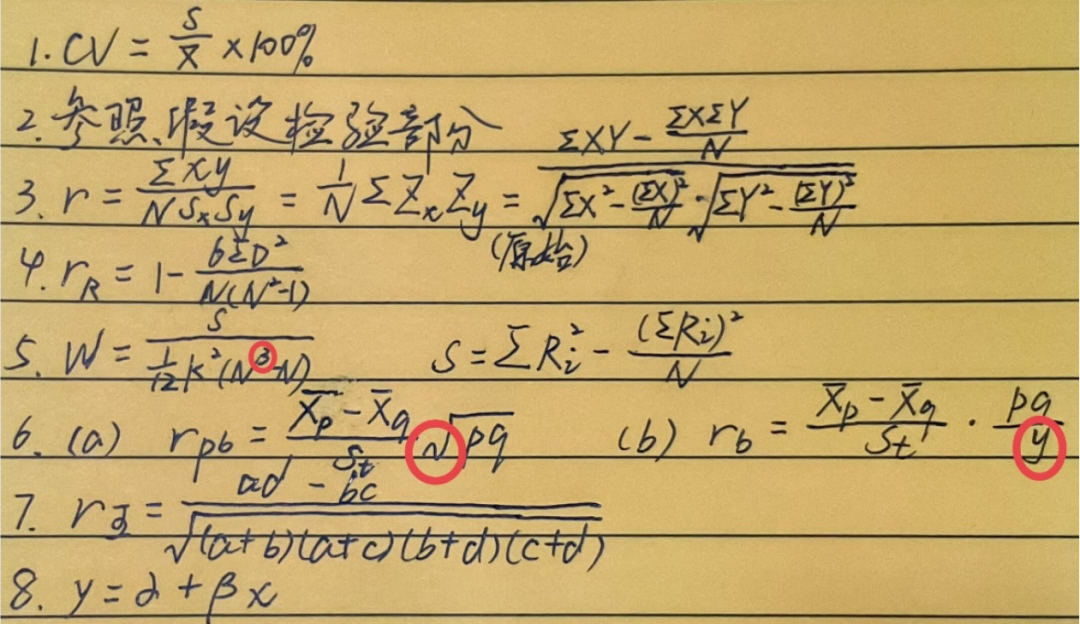 1. CV = S/X̄ ×100%
2. 参照假设检验部分
3. r = Σxy/(N SₓSy) = 1/N ΣZₓZy = (ΣXY - ΣXΣY/N)/(√(ΣX² - (ΣX)²/N) · √(ΣY² - (ΣY)²/N))
(原始)
4. r_R = 1 - 6ΣD²/(N(N²-1))
5. W = S/(1/12 K²(N³-N)) S = ΣRᵢ² - (ΣRᵢ)²/N
6. (a) r_pb = (X̄p - X̄q)/St √pq (b) r_b = (X̄p - X̄q)/St · pq/y
7. rᵩ = (ad - bc)/√((a+b)(a+c)(b+d)(c+d))
8. y = α + βx